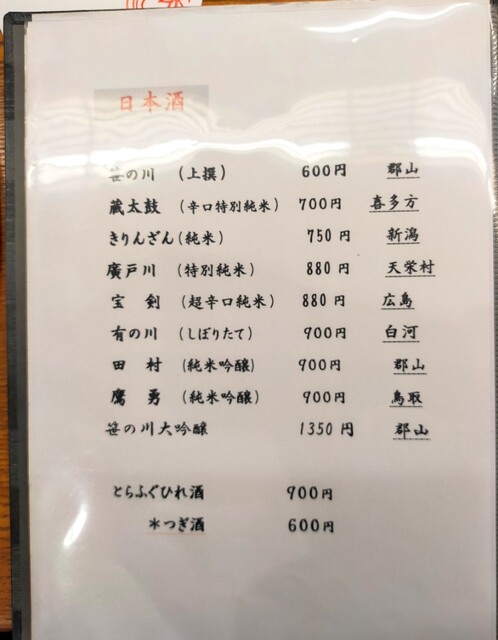 日本酒
笹の川 (上撰) 600円 郡山
蔵太鼓 (辛口特別純米) 700円 喜多方
きりんざん(純米) 750円 新潟
廣戸川 (特別純米) 880円 天栄村
宝剣 (超辛口純米) 880円 広島
有の川 (しぼりたて) 900円 白河
田村 (純米吟醸) 900円 郡山
鷹勇 (純米吟醸) 900円 鳥取
笹の川大吟醸 1350円 郡山
とらふぐひれ酒 900円
*つぎ酒 600円